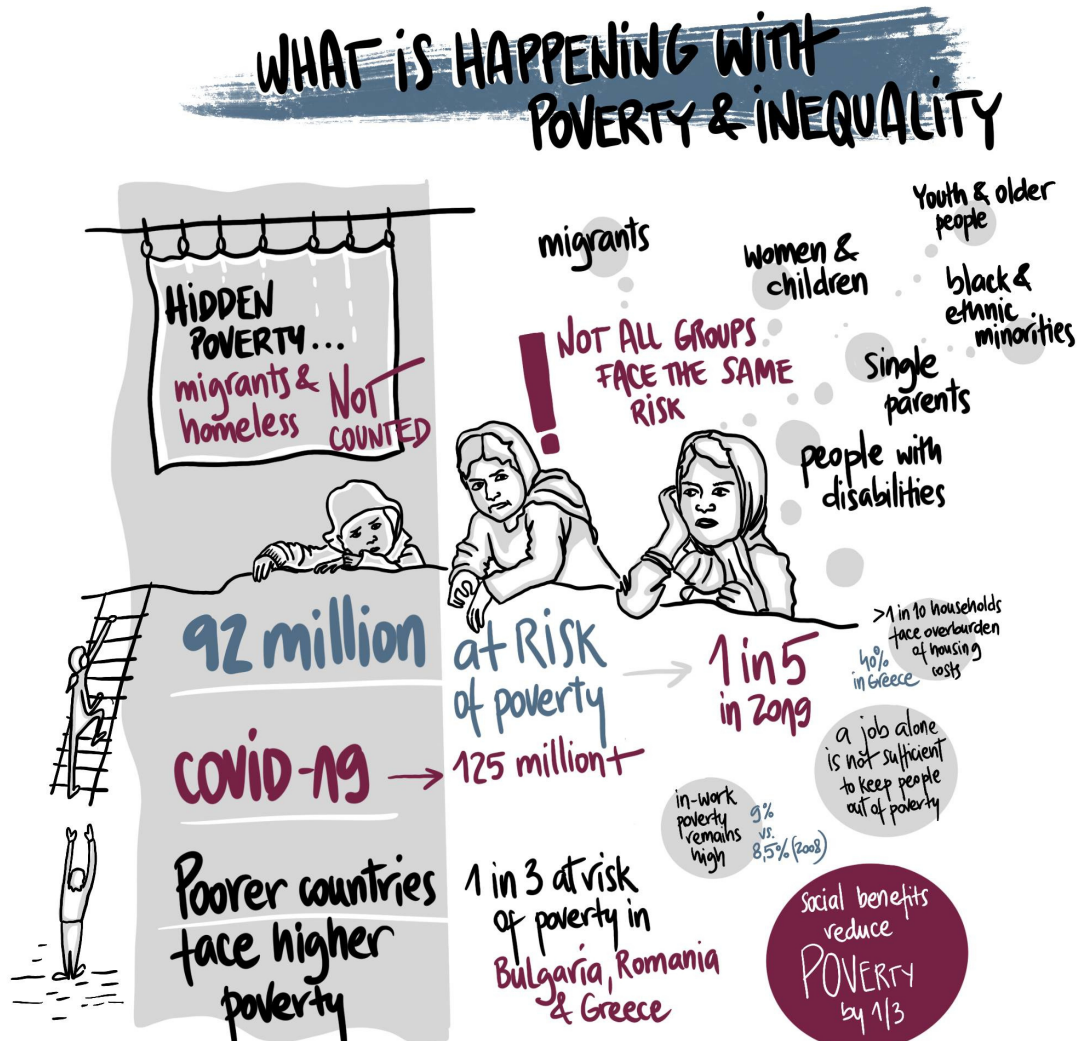 WHAT iS HAPPENiNG WiTH
POVERTY & iNEQUALiTY
HiDDEN
POVERTY...
migrants &
homeless
NOT
COUNTED
migrants
women &
children
Youth & older
people
black &
ethnic
minorities
Single
parents
people with
disabilities
NOT ALL GROUPS
FACE THE SAME
RiSK
92 million
at RiSK
of poverty
1 in 5
in 2019
>1 in 10 households
face overburden
of housing
costs
40%
in Greece
COViD-19
125 million+
a job alone
is not sufficient
to keep people
out of poverty
in-work
poverty
remains
high
9%
vs.
8,5% (2008)
Poorer countries
face higher
poverty
1 in 3 at risk
of poverty in
Bulgaria, Romania
& Greece
Social benefits
reduce
POVERTY
by 1/3